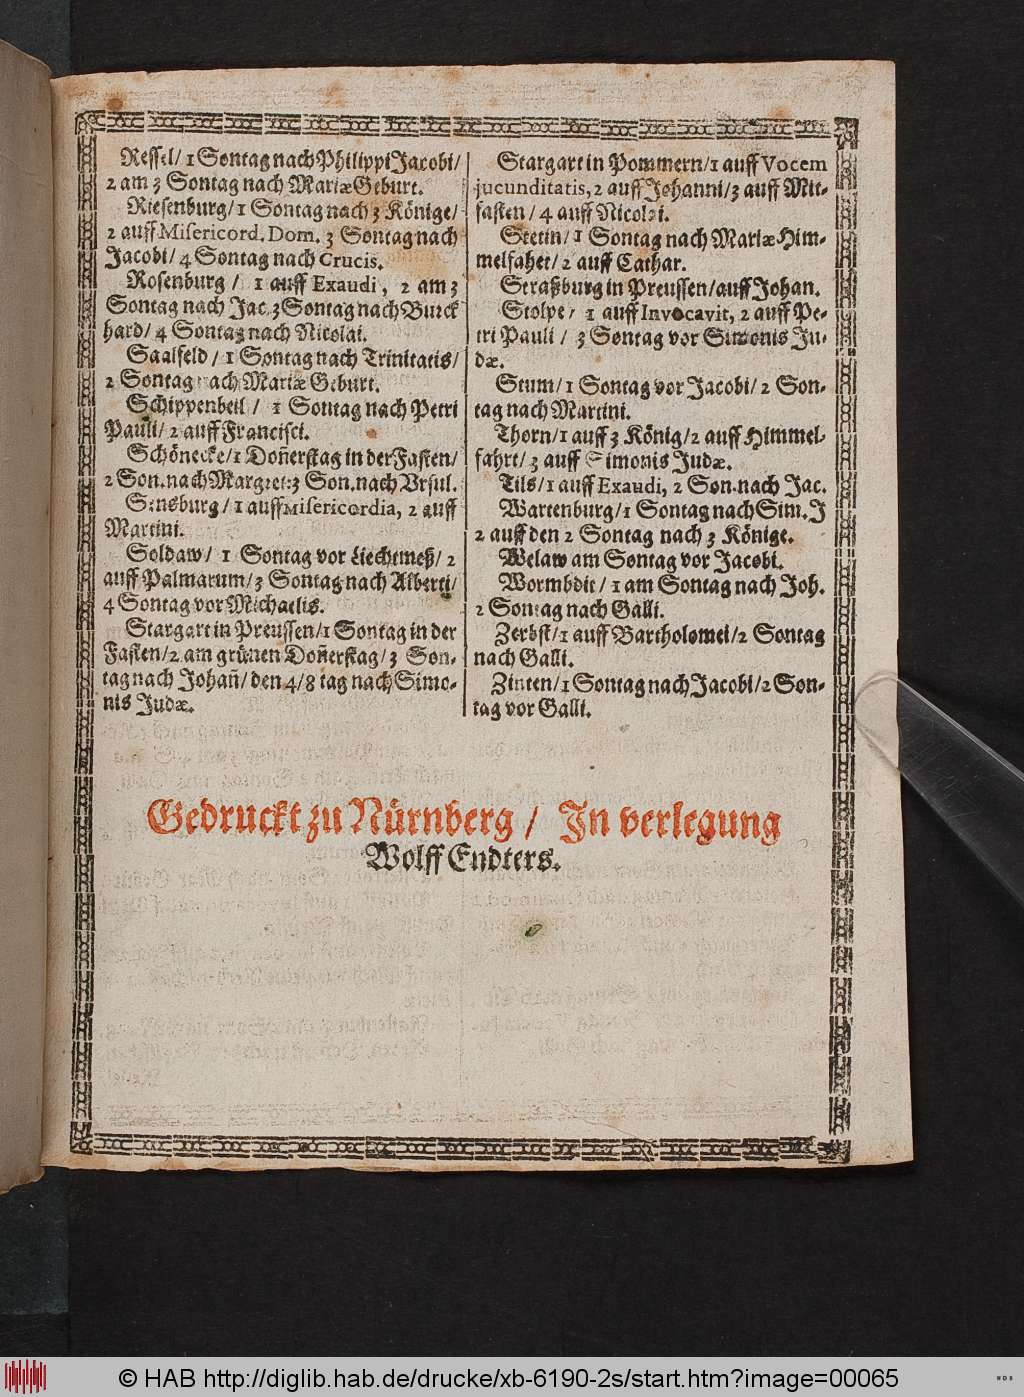 Ressel/ 1 Sontag nach Philippi Jacobi/
2 am 3 Sontag nach Mariæ Geburt.
Riesenburg/ 1 Sontag nach 3 Könige/
2 auff Misericord. Dom. 3 Sontag nach
Jacobi/ 4 Sontag nach Crucis.
Rosenburg / 1 auff Exaudi, 2 am 3
Sontag nach Jac. 3 Sontag nach Burck
hard/ 4 Sontag nach Nicolai.
Saalfeld / 1 Sontag nach Trinitatis/
2 Sontag nach Mariæ Geburt.
Schippenbeil / 1 Sontag nach Petri
Pauli/ 2 auff Francisci.
Schönecke/ 1 Doñerstag in der Fasten/
2 Son. nach Margret: 3 Son. nach Vrsul.
Sensburg/ 1 auff Misericordia, 2 auff
Martini.
Soldaw/ 1 Sontag vor Liechtmeß/ 2
auff Palmarum/ 3 Sontag nach Alberti/
4 Sontag vor Michaelis.
Stargart in Preussen/ 1 Sontag in der
Fasten/ 2 am grünen Doñerstag/ 3 Son-
tag nach Johañ/ den 4/ 8 tag nach Simo-
nis Judæ.
Stargart in Pommern/ 1 auff Vocem
jucunditatis, 2 auff Johanni/ 3 auff Mit-
fasten / 4 auff Nicolai.
Stetin/ 1 Sontag nach Mariæ Him-
melfahet/ 2 auff Cathar.
Straßburg in Preussen/ auff Johan.
Stolpe / 1 auff Invocavit, 2 auff Pe-
tri Pauli / 3 Sontag vor Simonis Ju-
dæ.
Stum/ 1 Sontag vor Jacobi/ 2 Son-
tag nach Martini.
Thorn/ 1 auff 3 König/ 2 auff Himmel-
fahrt/ 3 auff Simonis Judæ.
Tils/ 1 auff Exaudi, 2 Son. nach Jac.
Wartenburg/ 1 Sontag nach Sim. J
2 auff den 2 Sontag nach 3 Könige.
Welaw am Sontag vor Jacobi.
Wormbdit/ 1 am Sontag nach Joh.
2 Sontag nach Galli.
Zerbst/ 1 auff Bartholomei/ 2 Sontag
nach Galli.
Zinten/ 1 Sontag nach Jacobi/ 2 Son-
tag vor Galli.
Gedruckt zu Nürnberg / In verlegung
Wolff Endters.
© HAB http://diglib.hab.de/drucke/xb-6190-2s/start.htm?image=00065